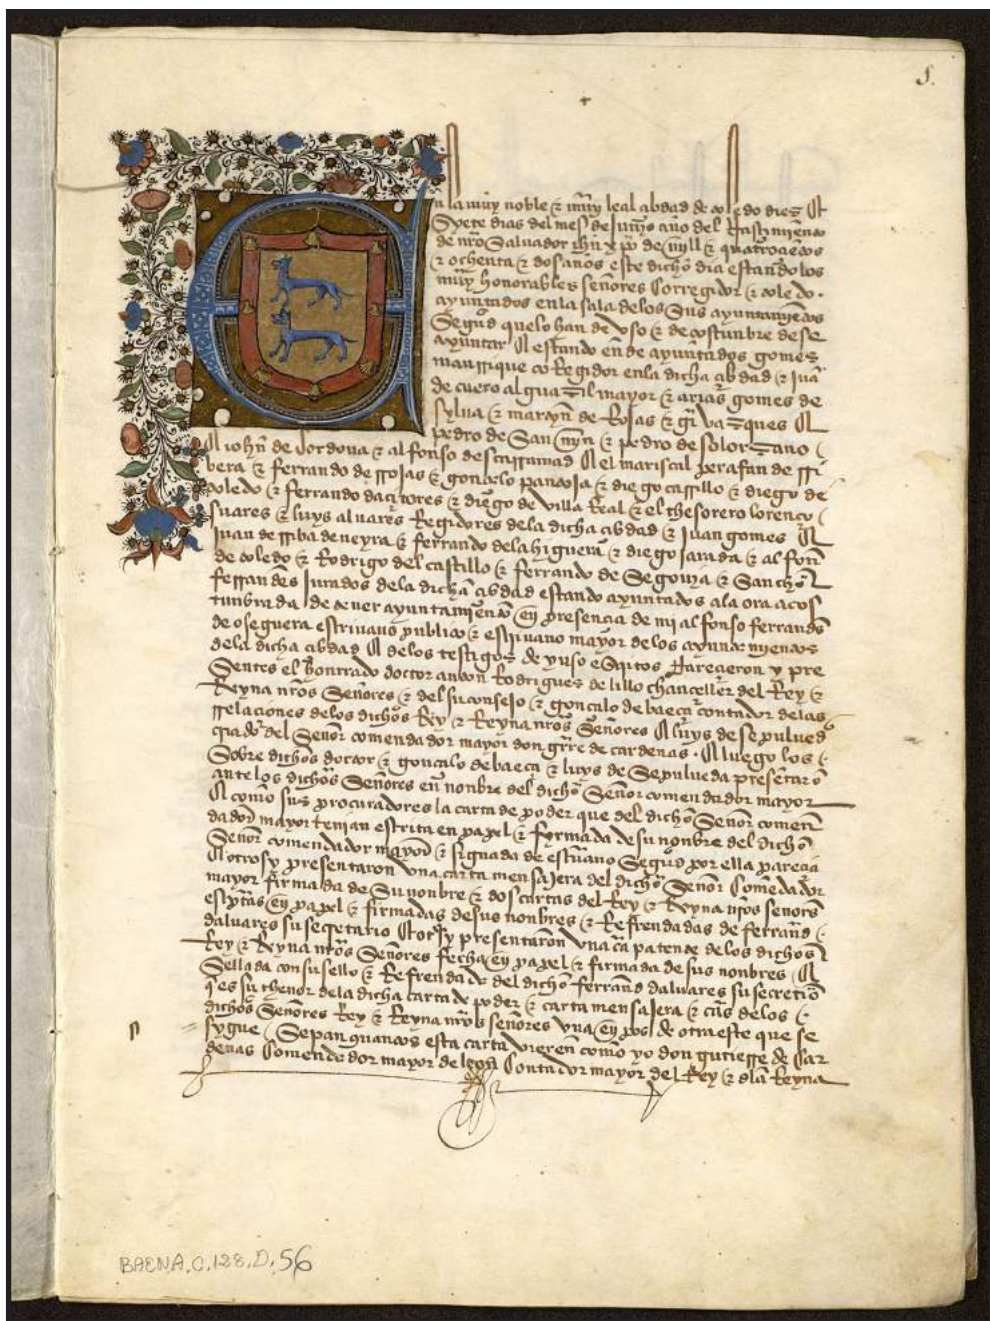 1.
En la muy noble & muy leal çibdad de toledo diez &
Syete dias del mes de junyo año del Nasçimiento
de nro Salvador ihu xpo de mill & quatroçientos
& ochenta & dos años este dicho dia estando los
muy honorables señores Corregidor & toledo.
ayuntados en la sala de los sus ayuntamientos
Segund que lo han de vso & de costunbre de se
ayuntar & estando ende ayuntados gomes
manrrique coRegidor en la dicha çibdad & juan
de alguazil mayor & arias gomes de
sylua & martyn de Rojas & vazques &
pedro de San myn & pedro de solorzano
& john de cordoua & alfonso de & el mariscal perafan de rri
bera & ferrando de rrojas & gonçalo pantoja & diego carrillo & diego de
toledo & ferrando & diego de villa Real & el thesorero lorenço
suares & luys aluares Regidores de la dicha çibdad & juan gomes &
juan de rriba de neyra & ferrando de la higuera & diego jarada & alfon
de toledo & Rodrigo del castillo & ferrando de Segouia & Sancho
ferrandes jurados de la dicha çibdad estando ayuntados a la ora acos
tunbrada de tener ayuntamiento en presençia de mi alfonso ferrands
de oseguera escriuano publico & escriuano mayor de los ayuntamientos
de la dicha çibdad & de los testigos de yuso escriptos pareçieron y pre
Sentes el honrrado doctor anton Rodrigues de lillo chançeller del Rey &
Reyna nros Señores & del su consejo & gonçalo de baeça contador de las
rrelaçiones de los dichos Rey & Reyna nros Señores & luys de sepulueda
criado del Señor comendador mayor don grre de cardenas. & luego los
Sobre dichos doctor & gonçalo de baeça & luys de Sepulueda presentaron
ante los dichos Señores en nonbre del dicho Señor comendador mayor
& como sus procuradores la carta de poder que del dicho Señor comen
dador mayor tenian escrita en papel & fyrmada de su nonbre del dicho
Señor comendador mayor & signada de escriuano Segund por ella pareçia
& otrosy presentaron vna carta mensajera del dicho Señor Comendador
mayor firmada de Su nonbre & dos cartas del Rey & Reyna nros señores
escriptas en papel & firmadas de sus nonbres & Refrendadas de ferrand
daluares su secretario & otrosy presentaron vna carta patente de los dichos
Rey & Reyna nros Señores fecha en papel & firmada de sus nonbres &
Sellada con su sello & Refrendada del dicho ferrand daluares su secretario
que es su thenor de la dicha carta de poder & carta mensajera & cartas de los
dichos Señores Rey & Reyna nros señores vna en pos de otra este que se
sygue / Sepan quantos esta carta vieren como yo don gutierre de Car
denas Comendador mayor de leon Contador mayor del Rey & de la Reyna
BAENA.C.128.D.56